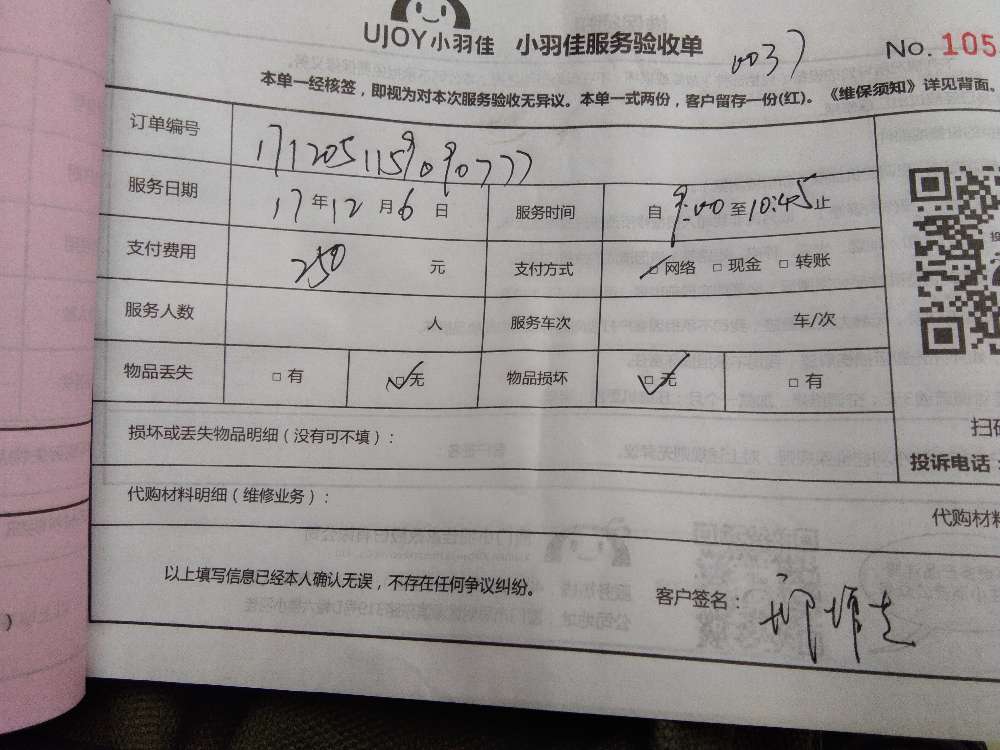 UJOY小羽佳 小羽佳服务验收单 0037 No. 105
本单一经核签，即视为对本次服务验收无异议。本单一式两份，客户留存一份(红)。《维保须知》详见背面。
订单编号 1712051159090777
服务日期 17年12月6日 服务时间 自9:00至10:45止
支付费用 250 元 支付方式 □网络 □现金 □转账
服务人数 人 服务车次 车/次
物品丢失 □有 □无 物品损坏 □无 □有
损坏或丢失物品明细（没有可不填）：
扫
投诉电话：
代购材料明细（维修业务）：
代购材料
以上填写信息已经本人确认无误，不存在任何争议纠纷。
客户签名：